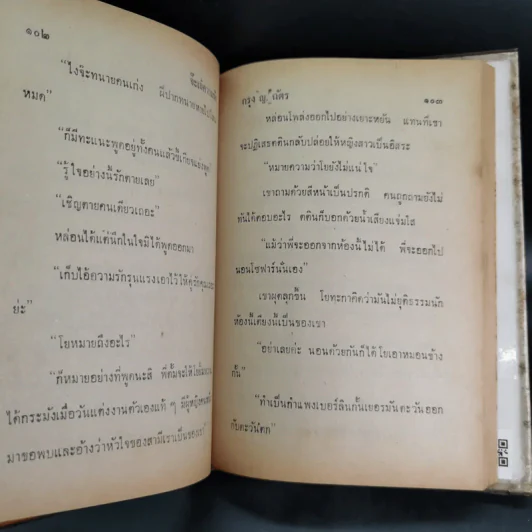 ๑๐๒
"ไงจ๊ะทนายคนเก่ง
หมด"
"ก็มีทะแนะพูดอยู่ทั้งคนแล้วขี้เกียจ
"รู้ใจอย่างนี้รักตายเลย"
"เชิญตายคนเดียวเถอะ"
หล่อนได้แต่นึกในใจมิได้พูดออกมา
"เก็บไอ้ความรักรุนแรงเอาไว้ให้คู่รักคุณเถอะ
ย่ะ"
"โยหมายถึงอะไร"
"ก็หมายอย่างที่พูดนะสิ
ได้กระมังเมื่อวันแต่งงานตัวเองแท้ ๆ มีผู้หญิง
มาขอพบและอ้างว่าหัวใจของสามีเราเป็นของเขา"
กรุง ญ. ฉัตร
๑๐๓
หล่อนโพล่งออกไปอย่างเยาะหยัน แทนที่เขา
จะปฏิเสธตตินกลับปล่อยให้หญิงสาวเป็นอิสระ
"หมายความว่าโยยังไม่แน่ใจ"
เขาถามด้วยสีหน้าเป็นปรกติ คนถูกถามยังไม่
ทันให้คำตอบอะไร ตตินก็บอกด้วยน้ำเสียงแจ่มใส
"แม้ว่าพี่จะออกจากห้องนี้ไม่ได้ พี่จะออกไป
นอนโซฟาร์นั่นเอง"
เขาผุดลุกขึ้น โยทะกาคิดว่ามันไม่ยุติธรรมนัก
ห้องนี้เตียงนี้เป็นของเขา
"อย่าเลยค่ะ นอนด้วยกันก็ได้ โยเอาหมอนข้าง
กั้น"
"ทำเป็นกำแพงเบอร์ลินกั้นเยอรมันตะวันออก
กับตะวันตก"